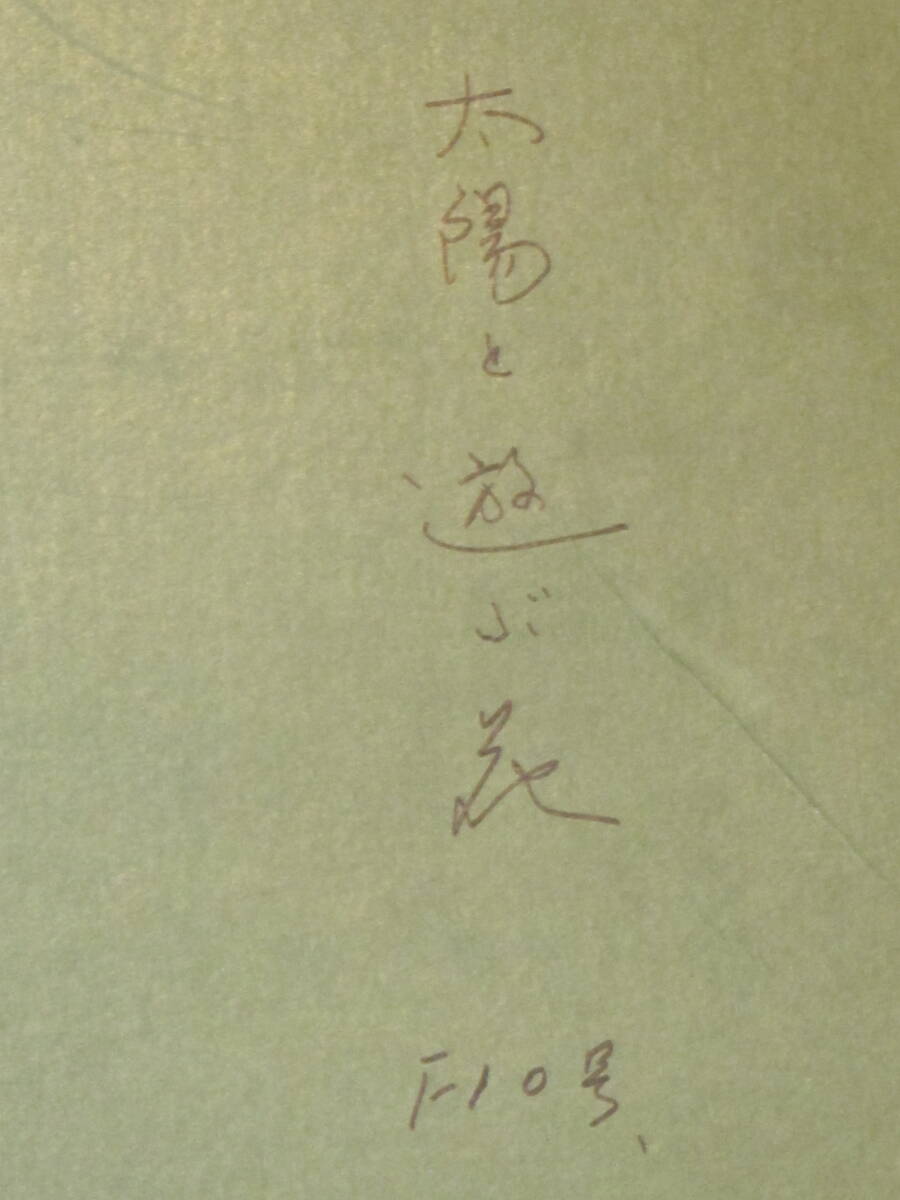 太陽と遊ぶ花
F10号